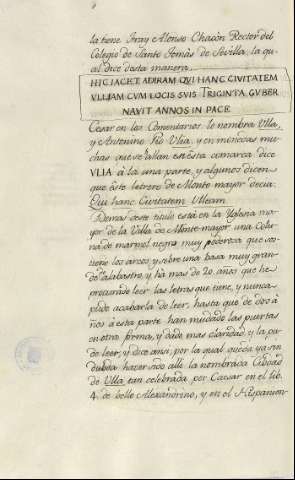 la tiene Fray Alonso Chacón Retor del
Colegio de Santo Tomás de Sevilla, la qu-
al dice desta manera.
HIC JACET ADIRAM QUI HANC CIVITATEM
VLLIAM CUM LOCIS SUIS TRIGINTA GVBER
NAVIT ANNOS IN PACE
Cesar en los Comentarios le nombra Ulla,
y Antonino Pio Ulea, y en monedas mu-
chas que se allan en esta comarca dice
VLIA á la una parte, y algunos dicen
que este letrero de Monte mayor decia:
Qui hanc Civitatem Ulleam.
Demas deste titulo está en la Yglesia ma-
yor de la Villa de Monte mayor una colu-
na de marmol negro muy poderosa que sos-
tiene los arcos y sobre una basa muy gran-
de de alabastro, y ha mas de 20 años que he
procurado leer las letras que tiene, y nunca
pude acabarla de leer, hasta que de dos a-
ños á esta parte han mudado las puertas
en otra forma, y dado mas claridad y la pu-
de leer, y dice ansi, por la qual queda ya sin
dubda haver sido alli la nombrada Ciudad
de Ulla tan celebrada por Caesar en el lib.
4. de bello Alexandrino, y en el Hispanien-